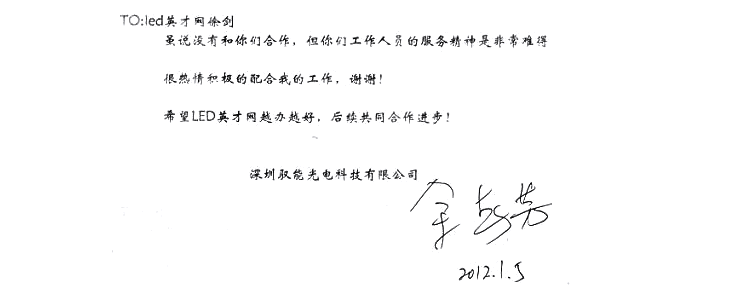 TO:led英才网徐剑
虽说没有和你们合作，但你们工作人员的服务精神是非常难得
很热情积极的配合我的工作，谢谢！
希望LED英才网越办越好，后续共同合作进步！
深圳驭能光电科技有限公司
2012.1.5